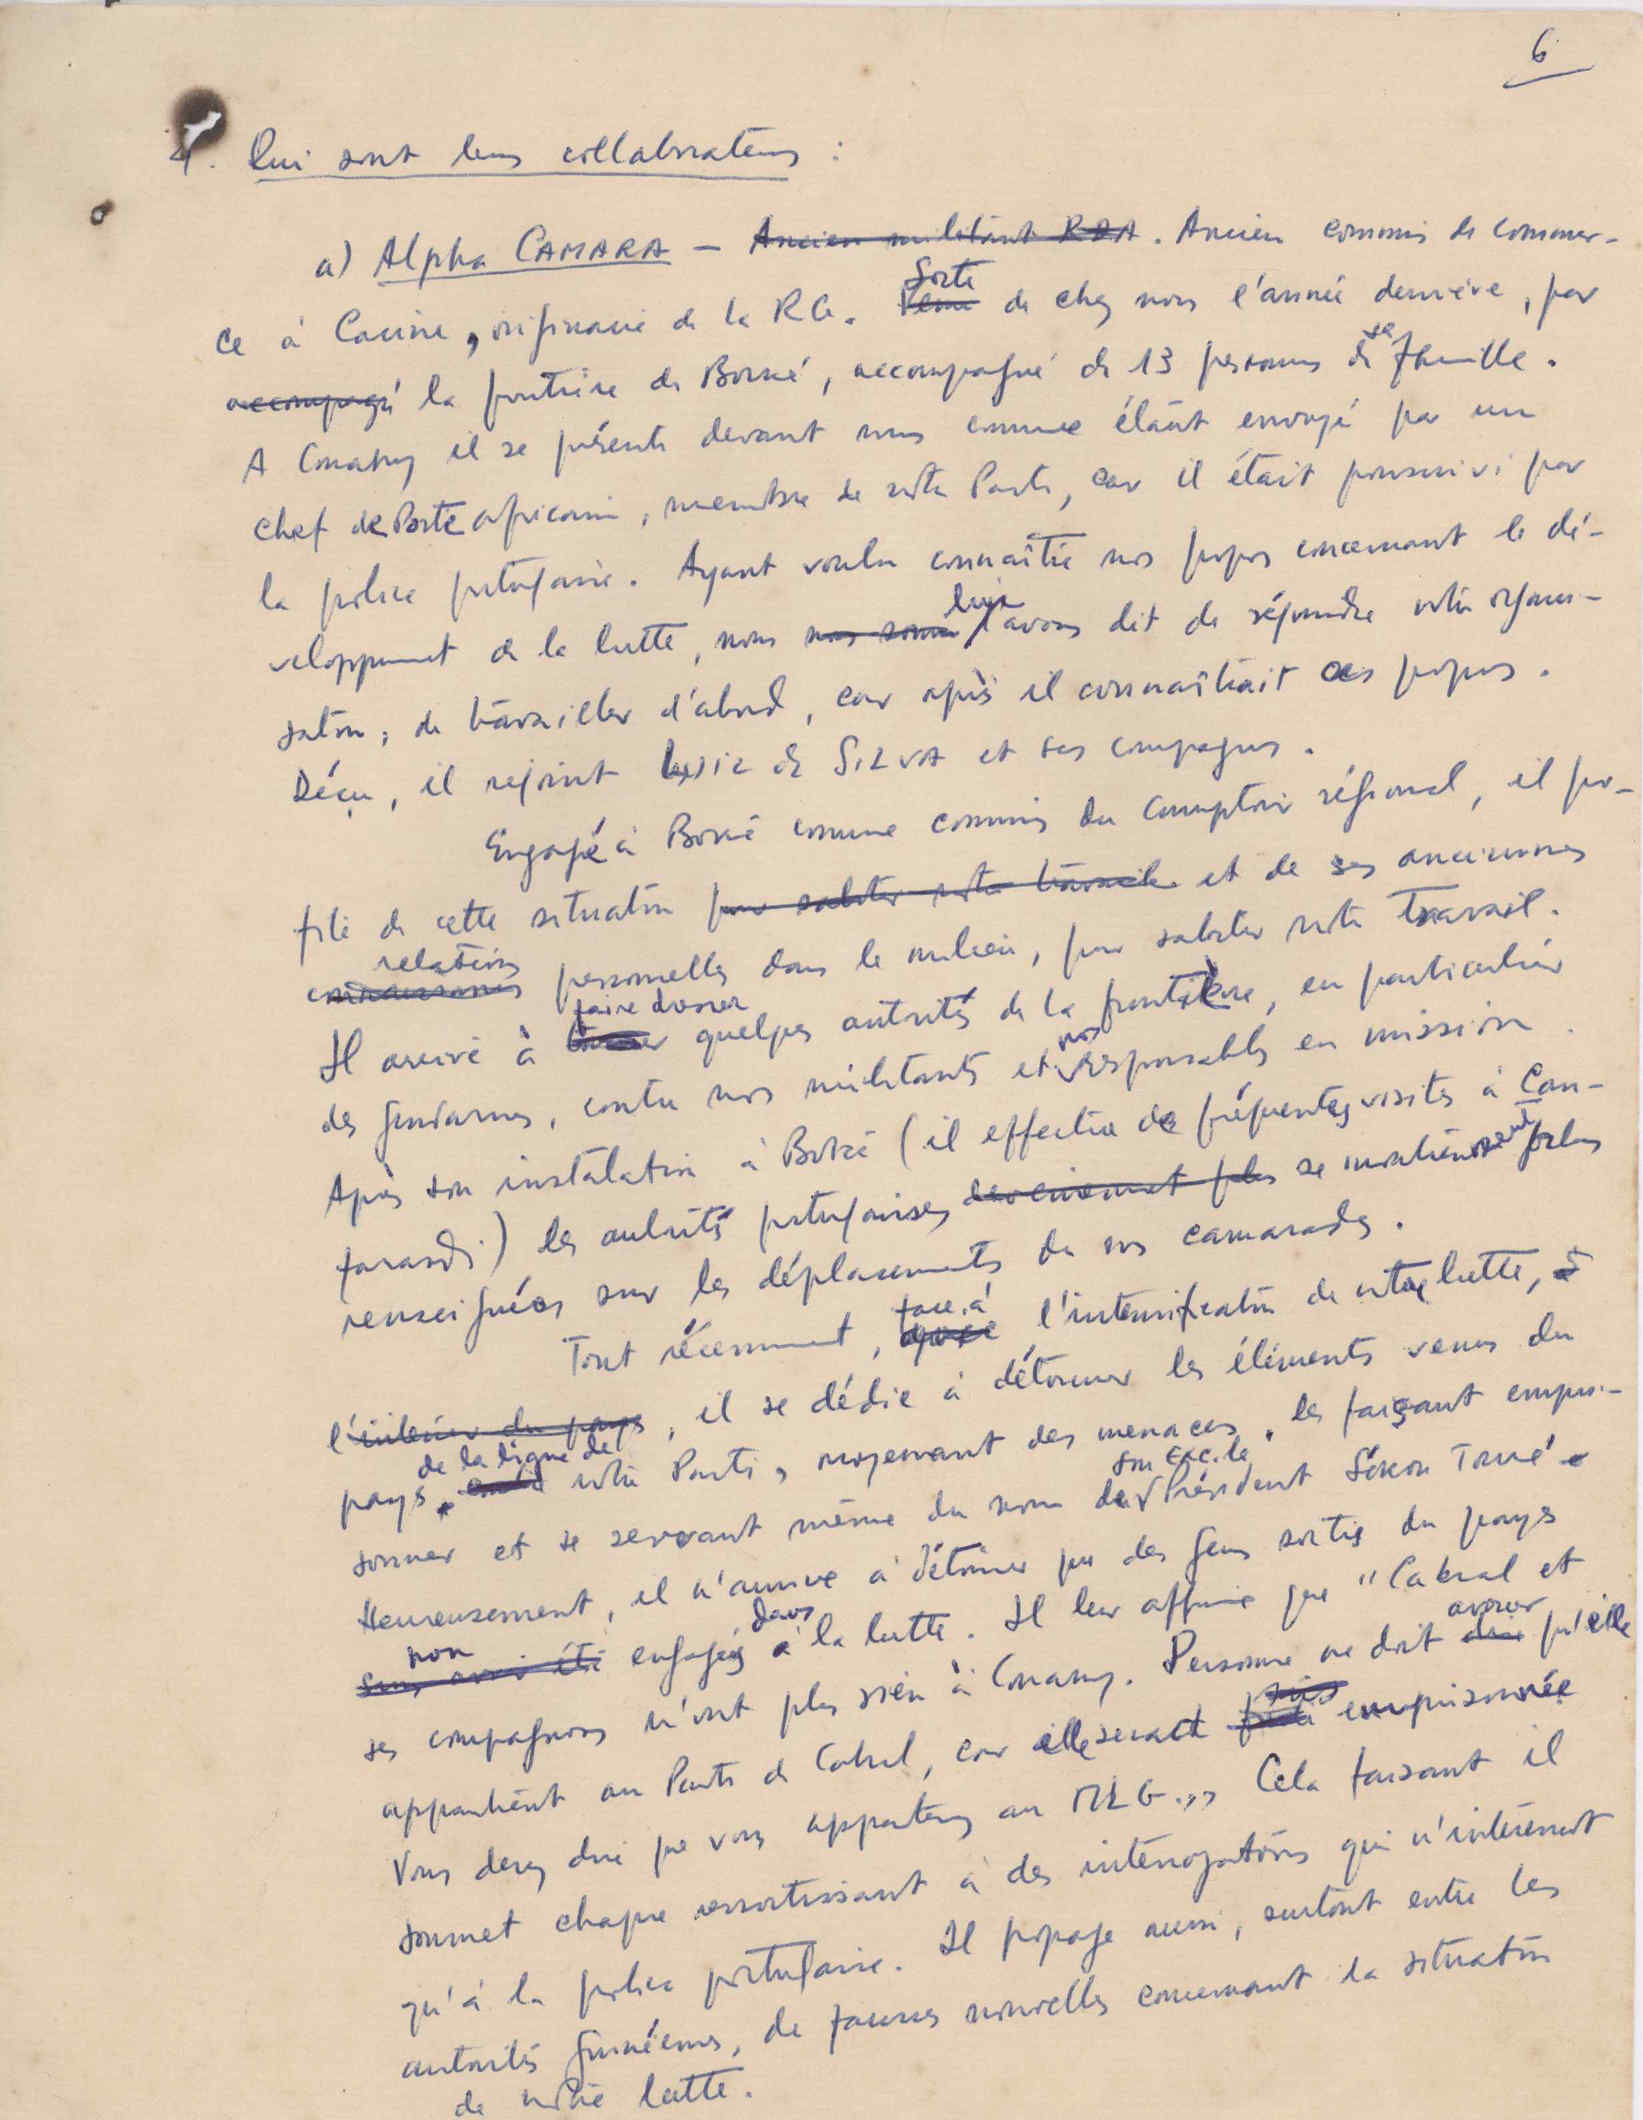 6
4. Qui sont leurs collaborateurs :
a) Alpha CAMARA — Ancien militant RDA. Ancien commis de commer-
ce à Cacine, originaire de la R.G. Sorti de chez nous l'année dernière, par
accompagné la frontière de Boké, accompagné de 13 personnes de sa famille.
A Conakry il se présente devant nous comme étant envoyé par un
chef de Poste africain, membre de notre Parti, car il était poursuivi par
la police portugaise. Ayant voulu connaître nos propos concernant le dé-
veloppement de la lutte, nous nous sommes lui avons dit de répondre notre organi-
sation, de travailler d'abord, car après il connaîtrait ces propos.
Déçu, il rejoint de SILVA et ses compagnons.
Engagé à Boké comme commis du Comptoir régional, il pro-
fite de cette situation pour saboter notre travail et de ses anciennes
connaissances relations personnelles dans le milieu, pour saboter notre travail.
Il arrive à faire dresser quelques autorités de la frontière, en particulier
des gendarmes, contre nos militants et nos responsables en mission.
Après son instalation à Boké (il effectue de fréquentes visites à Can-
farandi) les autorités portugaises deviennent plus se montrèrent plus
renseignées sur les déplacements de nos camarades.
Tout récemment, après face à l'intensification de notre lutte, à
l'intérieur du pays, il se dédie à détourner les éléments venus du
pays de la ligne de notre Parti, moyennant des menaces, les faisant empri-
sonner et se servant même du nom de son Exc. le Président Sékou Touré.
Heureusement, il n'arrive à détourner que des gens sortis du pays
sans avoir été non engagés dans à la lutte. Il leur affirme que "Cabral et
ses compagnons n'ont plus rien à Conakry. Personne ne doit dire avouer qu'elle
appartient au Parti de Cabral, car elle serait pris emprisonnée
Vous devez dire que vous appartenez au MLG.,, Cela faisant il
soumet chaque ressortissant à des interrogatoires qui n'intéressent
qu'à la police portugaise. Il propage aussi, surtout entre les
autorités guinéennes, de fausses nouvelles concernant la situation
de notre lutte.